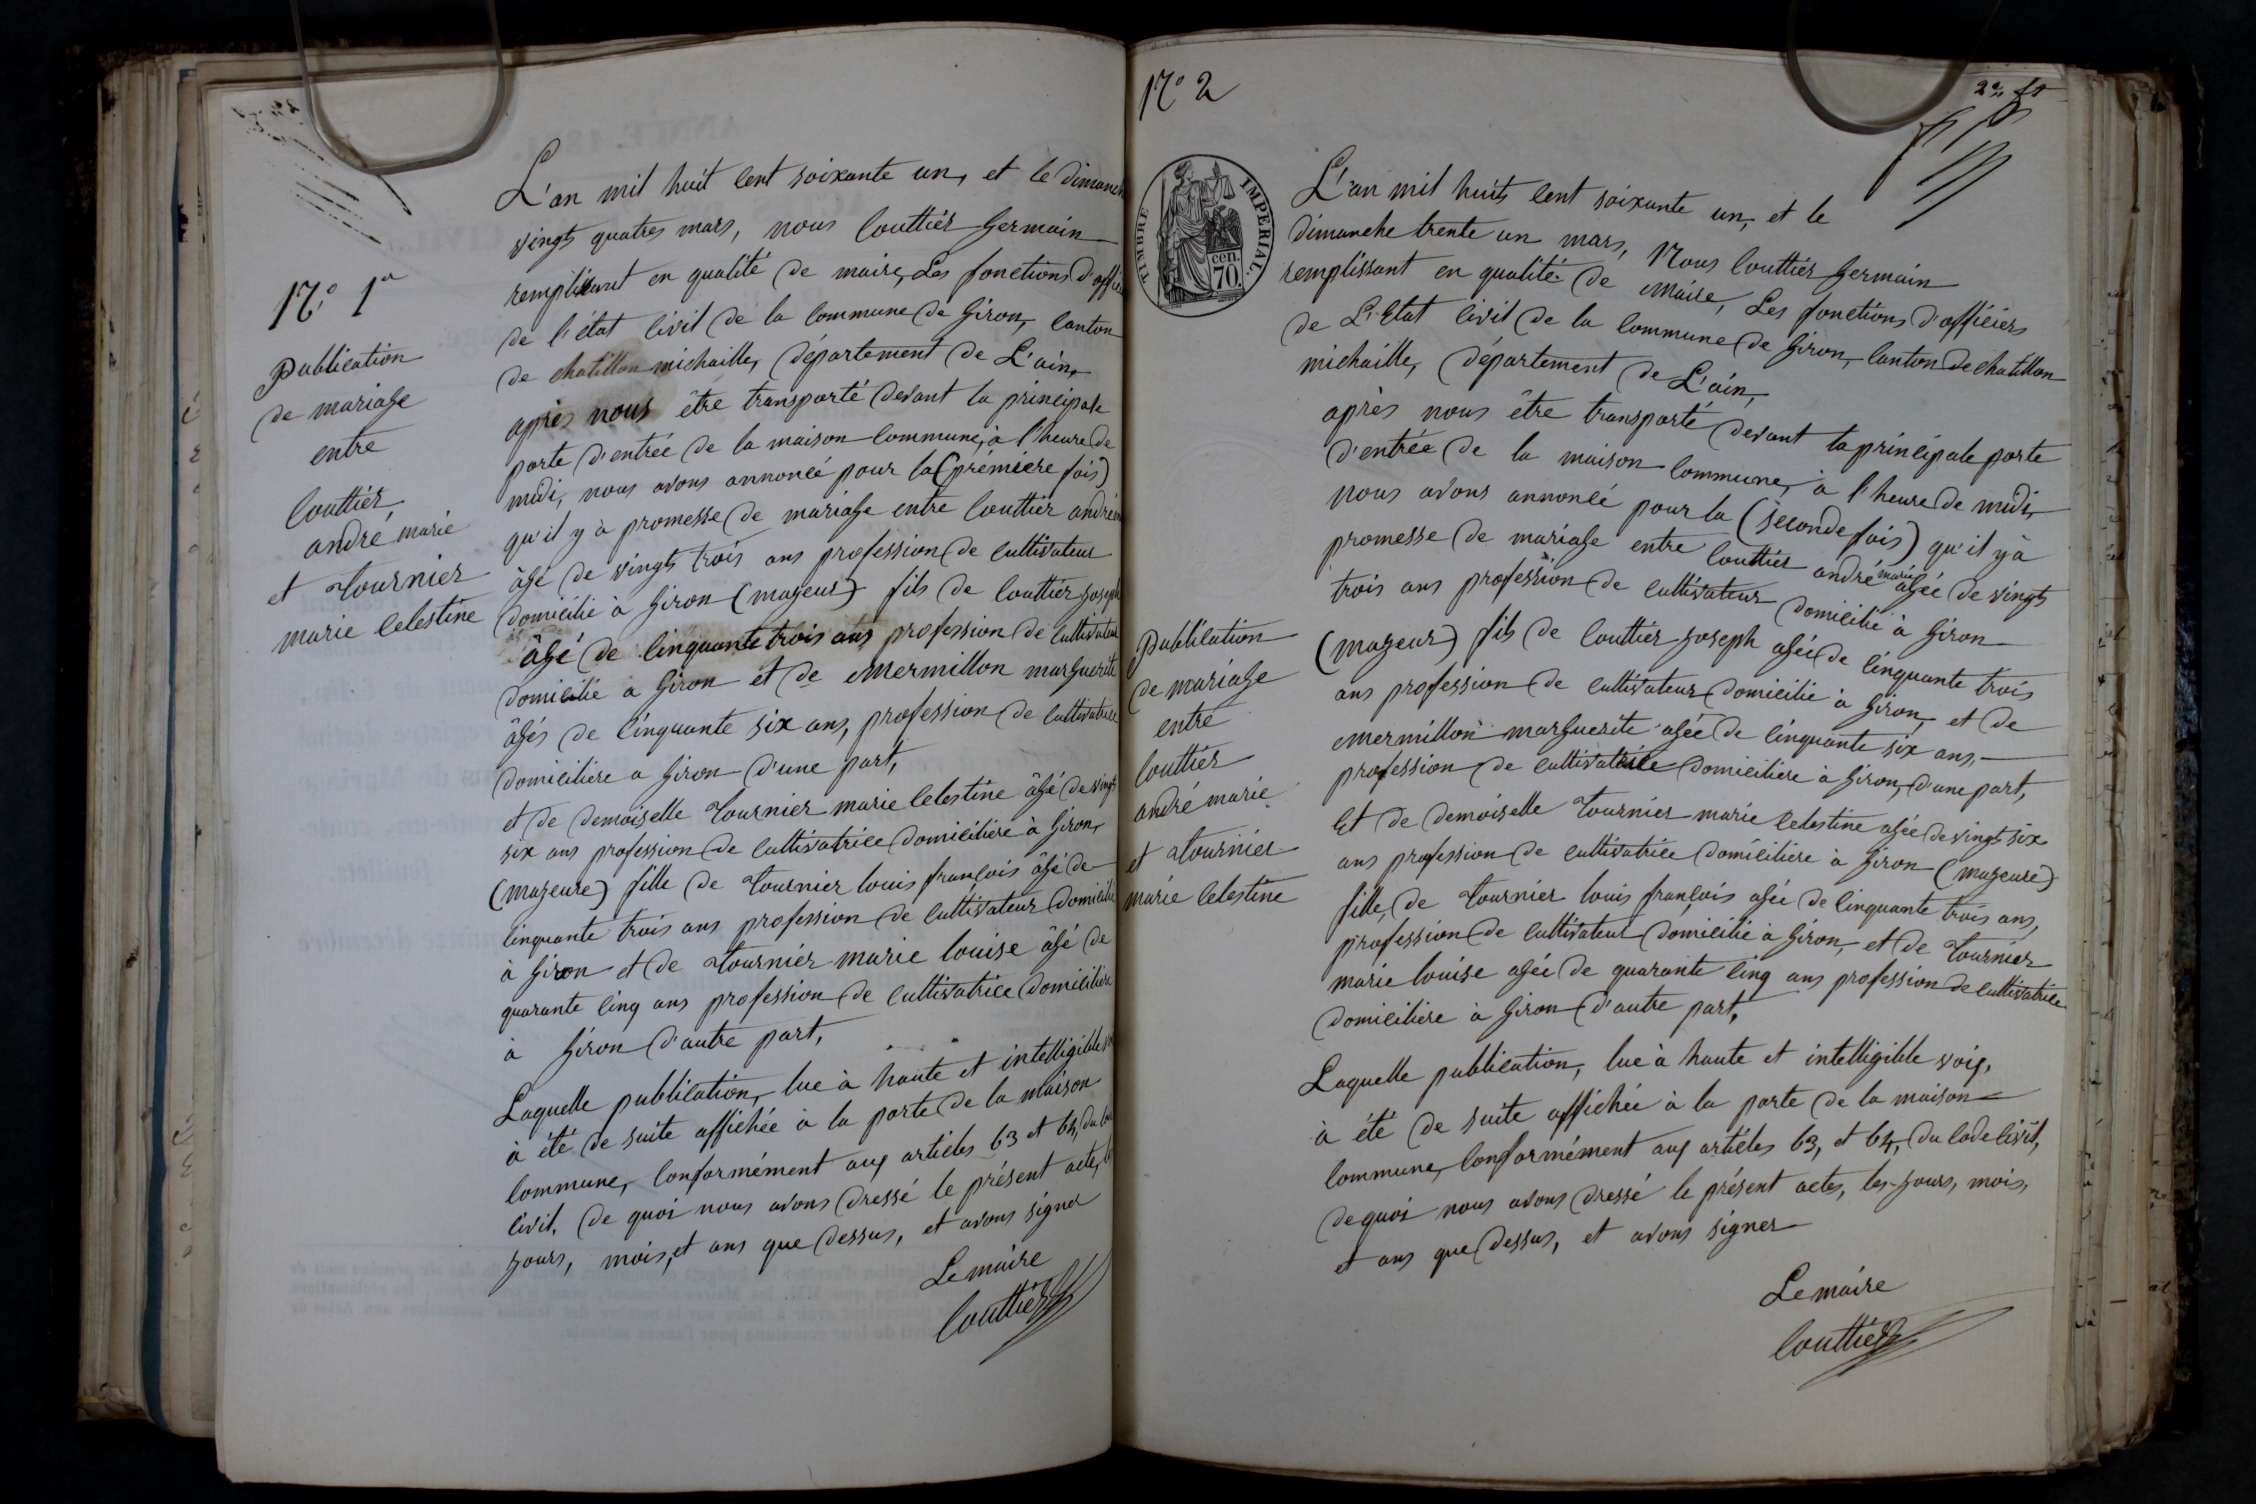 N.o 1er
Publication
de mariage
entre
Couttier
andré marie
et Tournier
marie Celestine
L'an mil huit Cent soixante un, et le dimanch
vingt quatres mars, nous Couttier Germain
remplissant en qualité de maire, Les fonctions d'offici
de l'état Civil de la Commune de Giron, Canton
de chatillon michaille, département de L'ain,
après nous être transporté devant la principale
porte d'entrée de la maison Commune, à l'heure de
midi, nous avons annoncé pour la (prémiere fois)
qu'il y à promesse de mariage entre Couttier andré
âgé de vingt trois ans profession de Cultivateur
domicilié à Giron (mageur) fils de Couttier Joseph
âgé de Cinquante trois ans profession de Cultivateur
domicilié a Giron et de Mermillon marguerite
âgés de Cinquante six ans, profession de Cultivatrice
domiciliere a Giron d'une part,
et de demoiselle Tournier marie Celestine âgé de vingt
six ans profession de Cultivatrice domiciliere à Giron,
(mageure) fille de Tournier louis françois âgé de
Cinquante trois ans profession de Cultivateur domicilié
à Giron et de Tournier marie louise âgé de
quarante Cinq ans profession de Cultivatrice domiciliere
à Giron d'autre part,
Laquelle publication, lue à haute et intelligible
à été de suite affichée à la porte de la maison
Commune, Conformément aux articles 63 et 64, du Co
Civil, de quoi nous avons dressé le présent acte,
jours, mois, et ans que dessus, et avons signer
Le maire
Couttier
N.o 2
2e ft
TIMBRE IMPERIAL.
cen.
70.
L'an mil huits Cent soixante un, et le
dimanche trente un mars, Nous Couttier Germain
remplissant en qualité de Maire, Les fonctions d'officiers
de L'Etat Civil de la Commune de Giron, Canton de chatillon
michaille, département de L'ain,
après nous être transporté devant la principale porte
d'entrée de la maison Commune, à l'heure de midi,
nous avons annoncé pour la (seconde fois) qu'il y à
promesse de mariage entre Couttier andré marie agée de vingt
trois ans profession de Cultivateur domicilié à Giron
(mageur) fils de Couttier Joseph agée de Cinquante trois
ans profession de Cultivateur domicilié à Giron, et de
Mermillon marguerite agée de Cinquante six ans,
profession de Cultivatrice domiciliere à Giron, d'une part,
Et de demoiselle Tournier marie Celestine agée de vingt six
ans profession de Cultivatrice domiciliere à Giron (mageure)
fille, de Tournier louis françois agée de Cinquante trois ans,
profession de Cultivateur domicilié à Giron, et de Tournier
marie louise agée de quarante Cinq ans profession de Cultivatrice
domiciliere à Giron d'autre part,
Laquelle publication, lue à haute et intelligible voix,
à été de suite affichée à la porte de la maison
Commune, Conformément aux articles 63, et 64, du Code Civil,
de quoi nous avons dressé le présent actes, les jours, mois,
et ans que dessus, et avons signer
Le maire
Couttier
Publication
de mariage
entre
Couttier
andré marie
et Tournier
marie Celestine